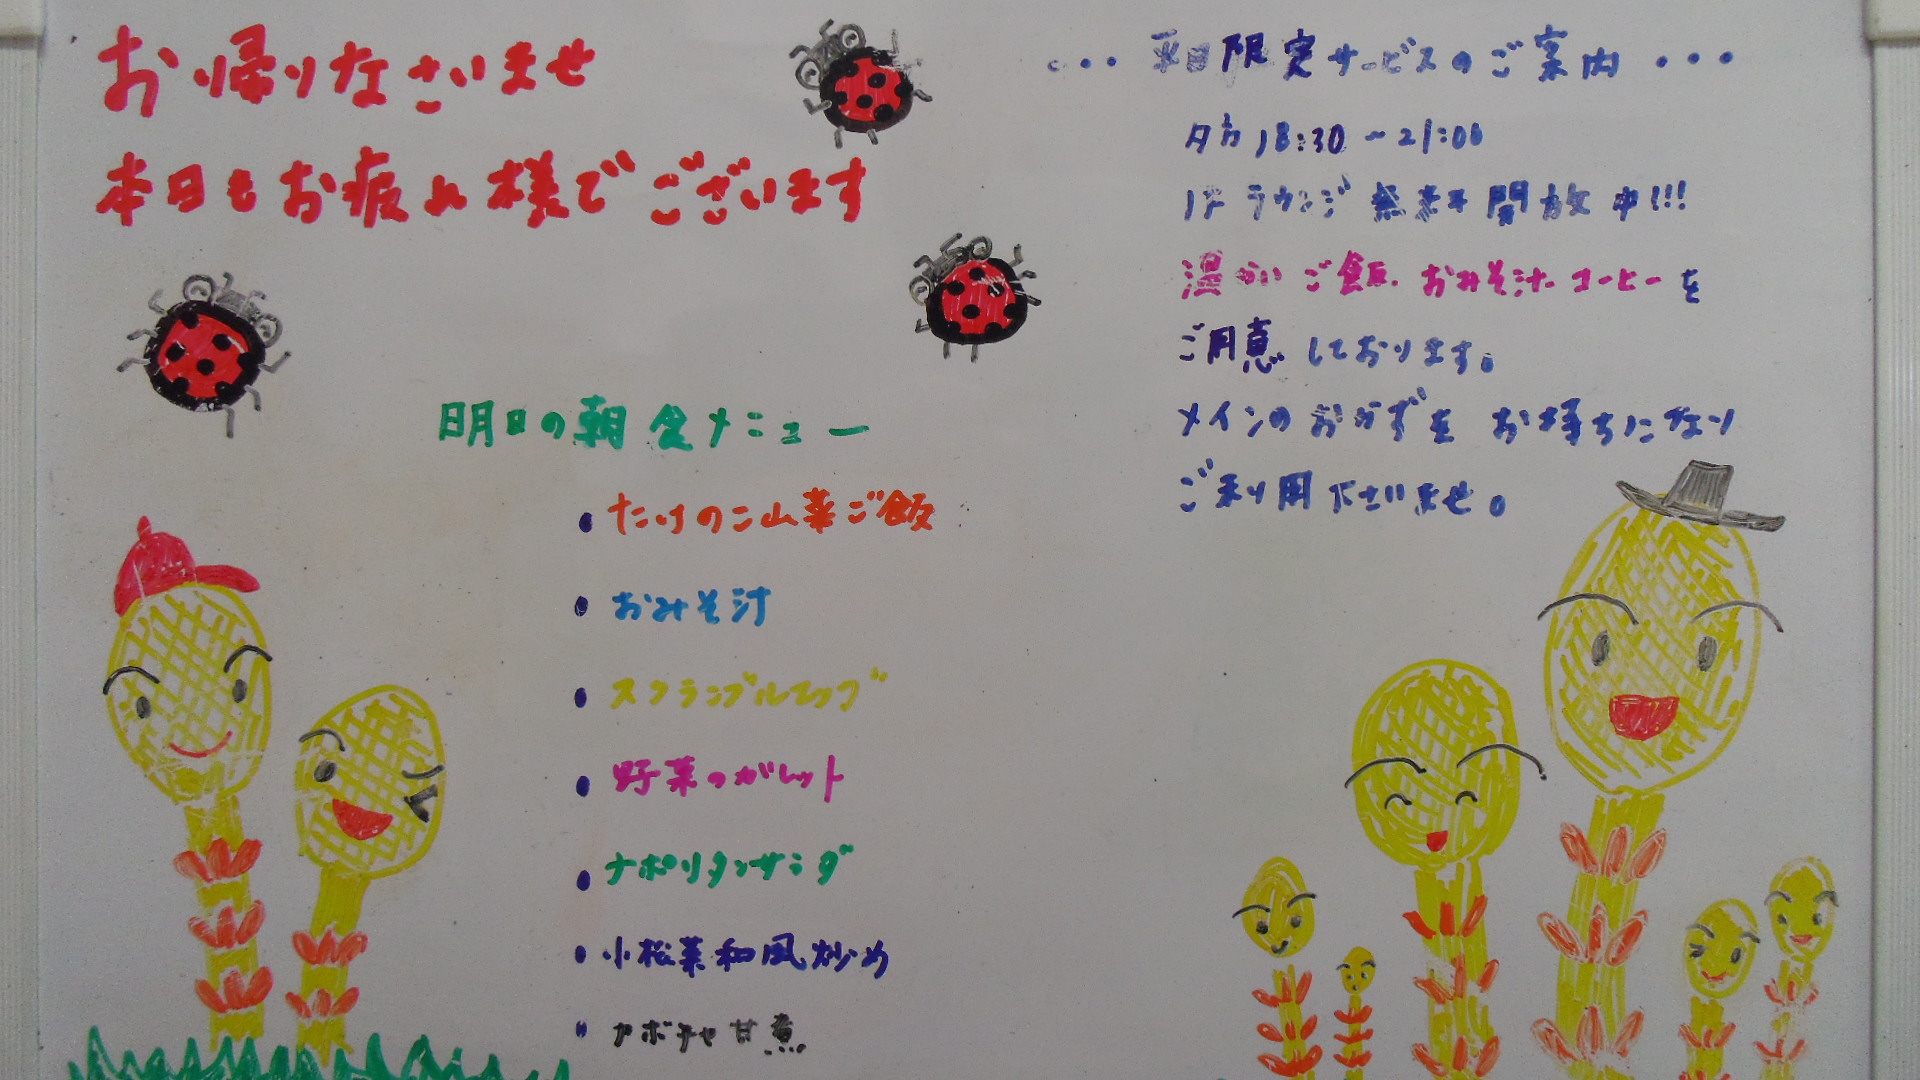 お帰りなさいませ
本日もお疲れ様でございます
明日の朝食メニュー
・たけのこ山菜ご飯
・おみそ汁
・スクランブルエッグ
・野菜のガレット
・ナポリタンサラダ
・小松菜和風炒め
・カボチャ甘煮
・・・平日限定サービスのご案内・・・
夕方18:30～21:00
1Fラウンジ無料開放中!!!
温かいご飯、おみそ汁、コーヒーを
ご用意しております。
メインのおかずをお持ちになり
ご利用下さいませ。